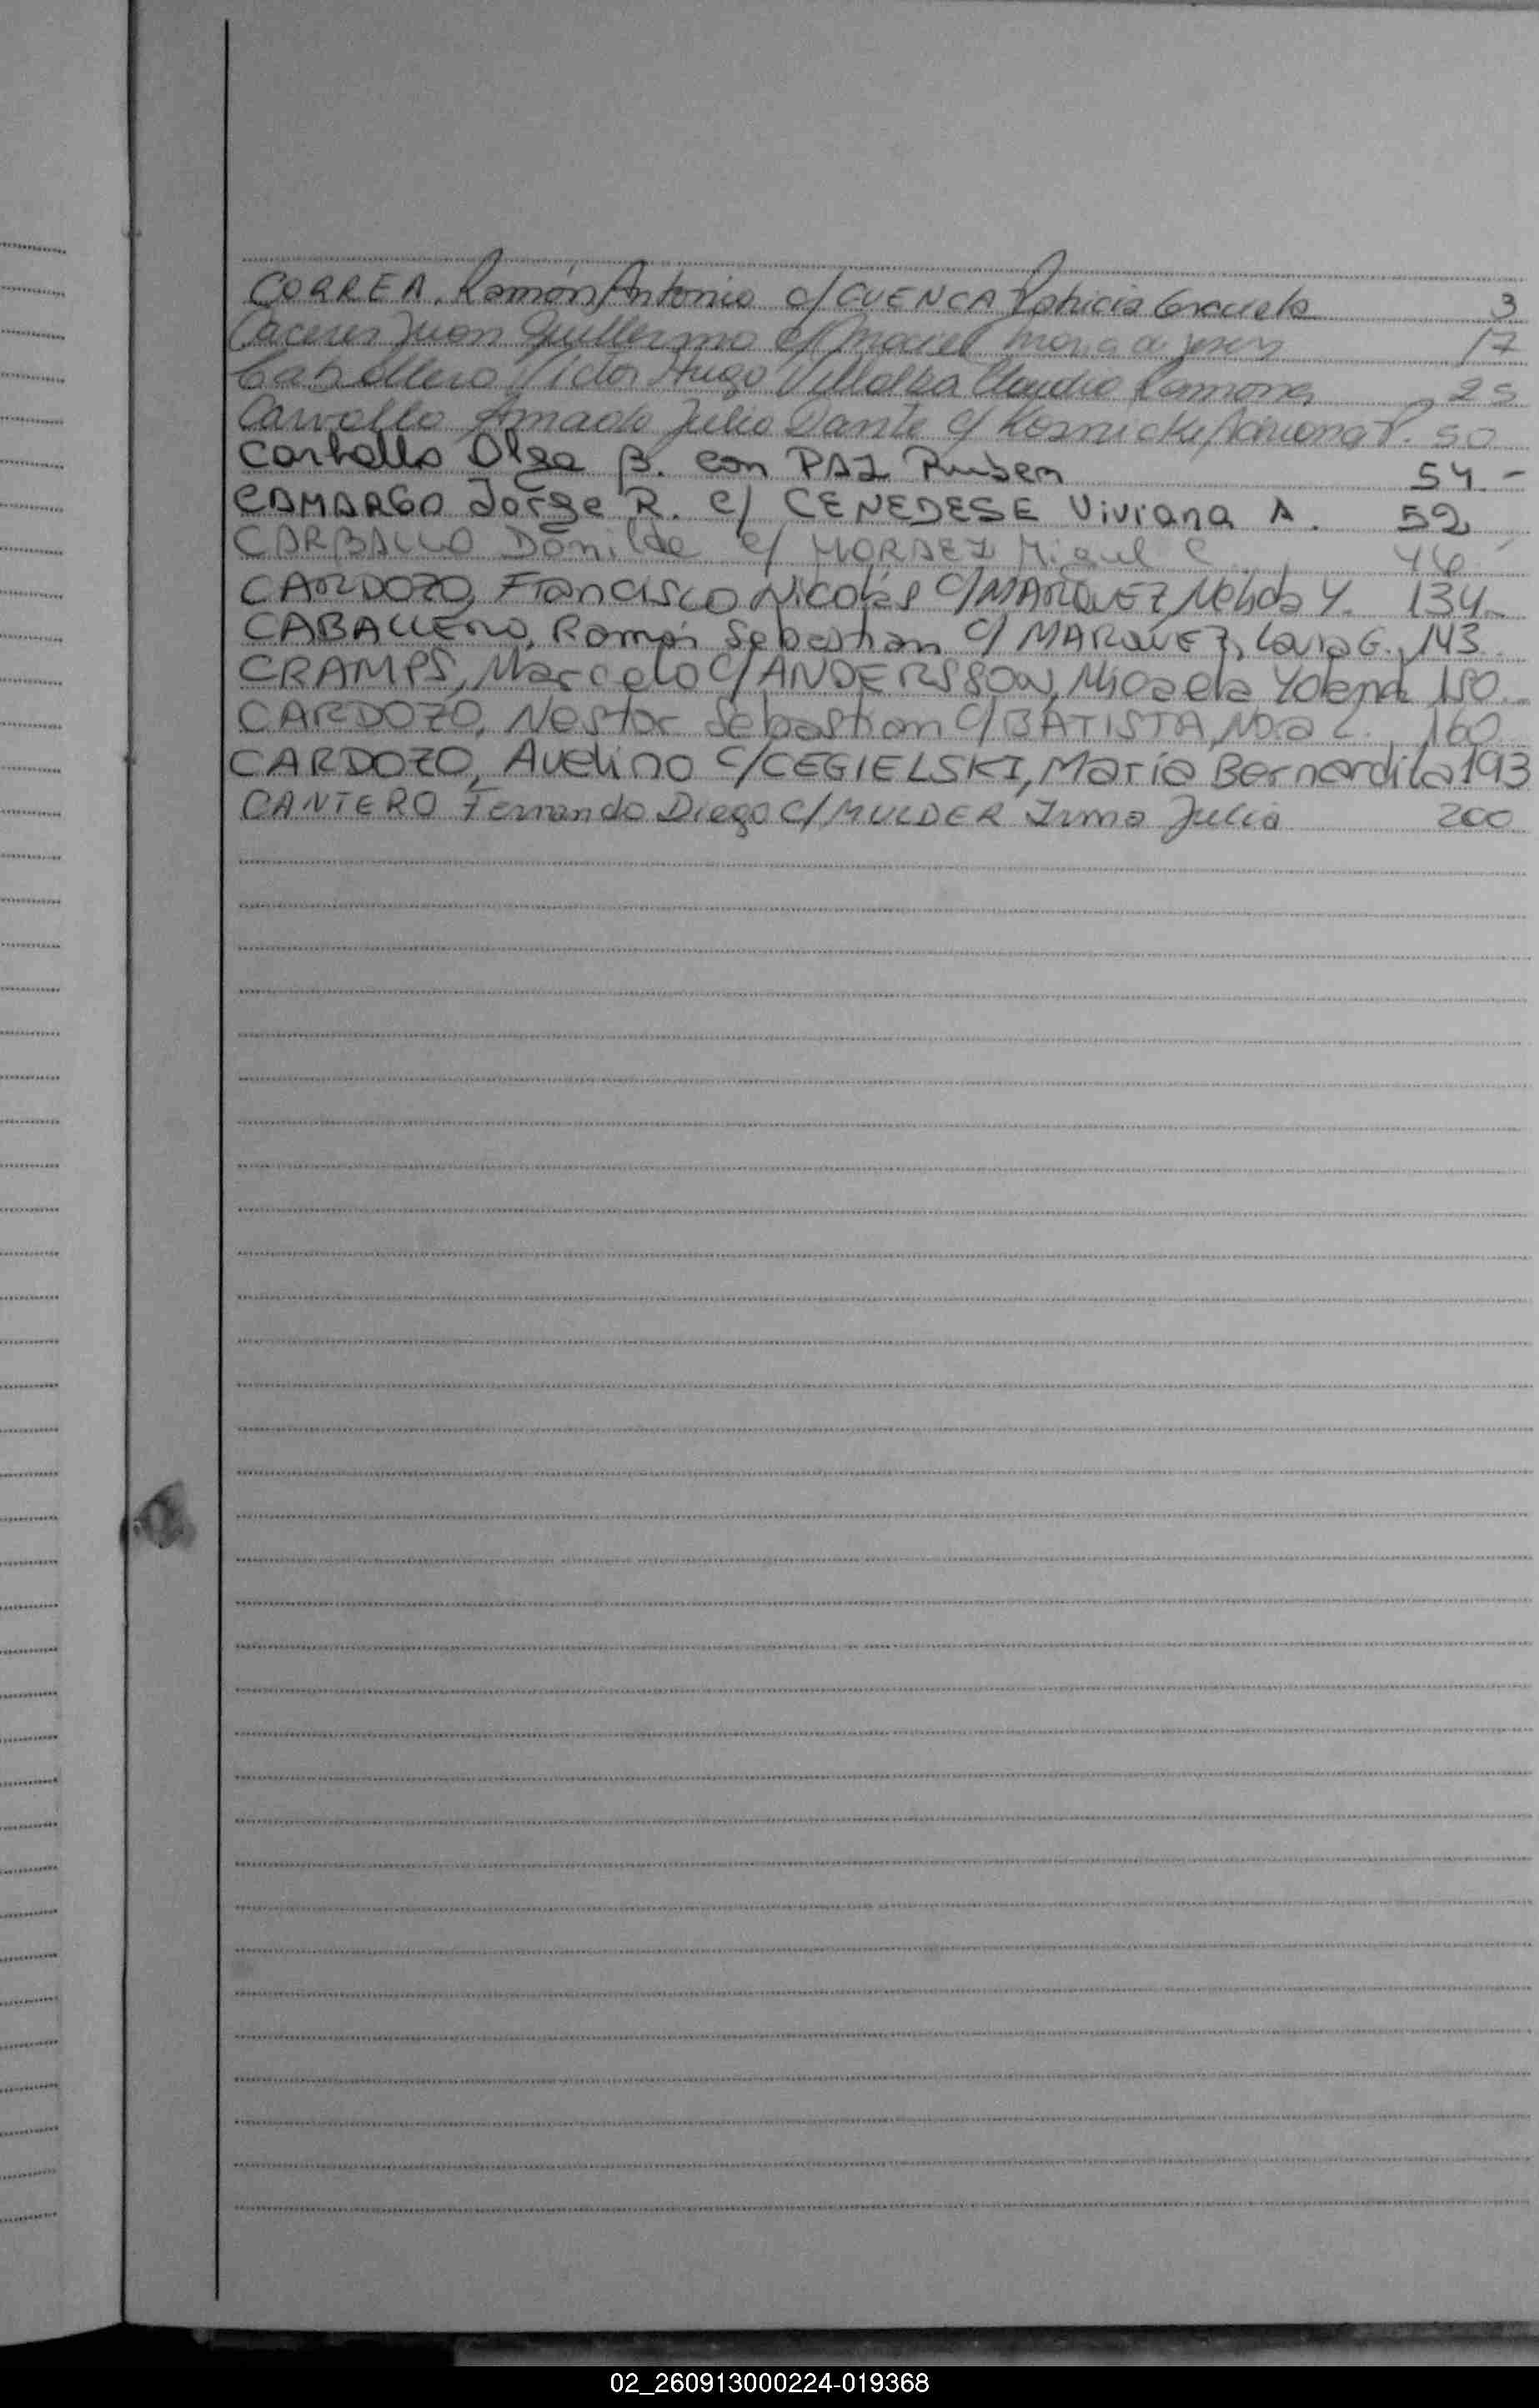 CORREA, Ramón Antonio c/ CUENCA Patricia Graciela 3
Caceres Juan Guillermo c/ Maciel Maria de Jesus 17
Caballero Victor Hugo Villalba Claudia Ramona 25
Carvallo Amado Julio Dante c/ Koznicki Adriana P. 50
Carballo Olga B. con PAZ Ruben 54.-
CAMARGO Jorge R. c/ CENEDESE Viviana A. 52
CARBALLO Donilde c/ Miguel C 46
CARDOZO, Francisco Nicolás c/ MARQUEZ Nelida Y. 134
CABALLERO, Ramón Sebastian c/ MARQUEZ, G. 143
CRAMPS, Marcelo c/ ANDERSSON, Micaela Yolanda 150
CARDOZO, Nestor Sebastian c/ BATISTA, L. 160
CARDOZO, Avelino c/ CEGIELSKI, María Bernardita 193
CANTERO Fernando Diego c/ MULDER Irma Julia 200
02_260913000224-019368